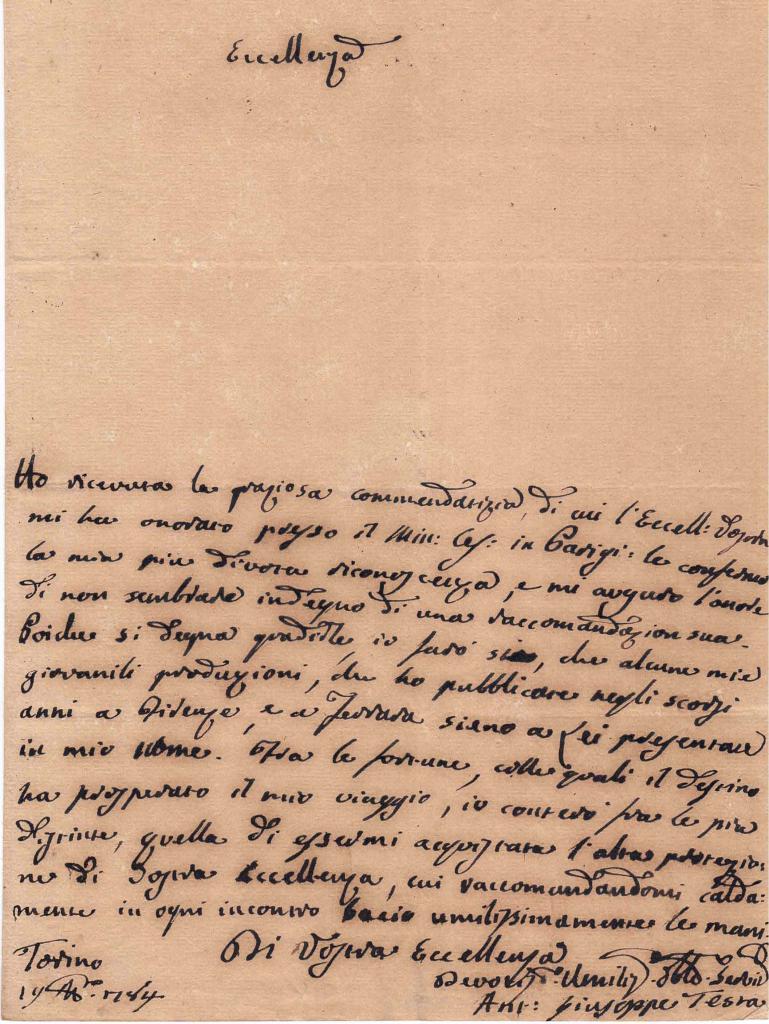 Eccellenza
Ho ricevuta la graziosa commendatizia, di cui l'Eccell: Vostra
mi ha onorato presso il Min: Ces: in Parigi: le confermo
la mia più divota riconoscenza, e mi auguro l'onore
di non sembrarle indegno di una raccomandazion sua.
Poiche si degna gradirle, io farò sì, che alcune mie
giovanili produzioni, che ho pubblicate negli scorsi
anni a Firenze, e a Ferrara sieno a Lei presentate
in mio nome. Fra le fortune, colle quali il destino
ha prosperato il mio viaggio, io conterò fra le più
distinte, quella di essermi acquistata l'alta protezio:
ne di Vostra Eccellenza, cui raccomandandomi calda:
mente in ogni incontro bacio umilissimamente le mani.
Di Vostra Eccellenza
Torino
Devotis:o Umilis: Obb: Servid
1784
Ant: Giuseppe Testa